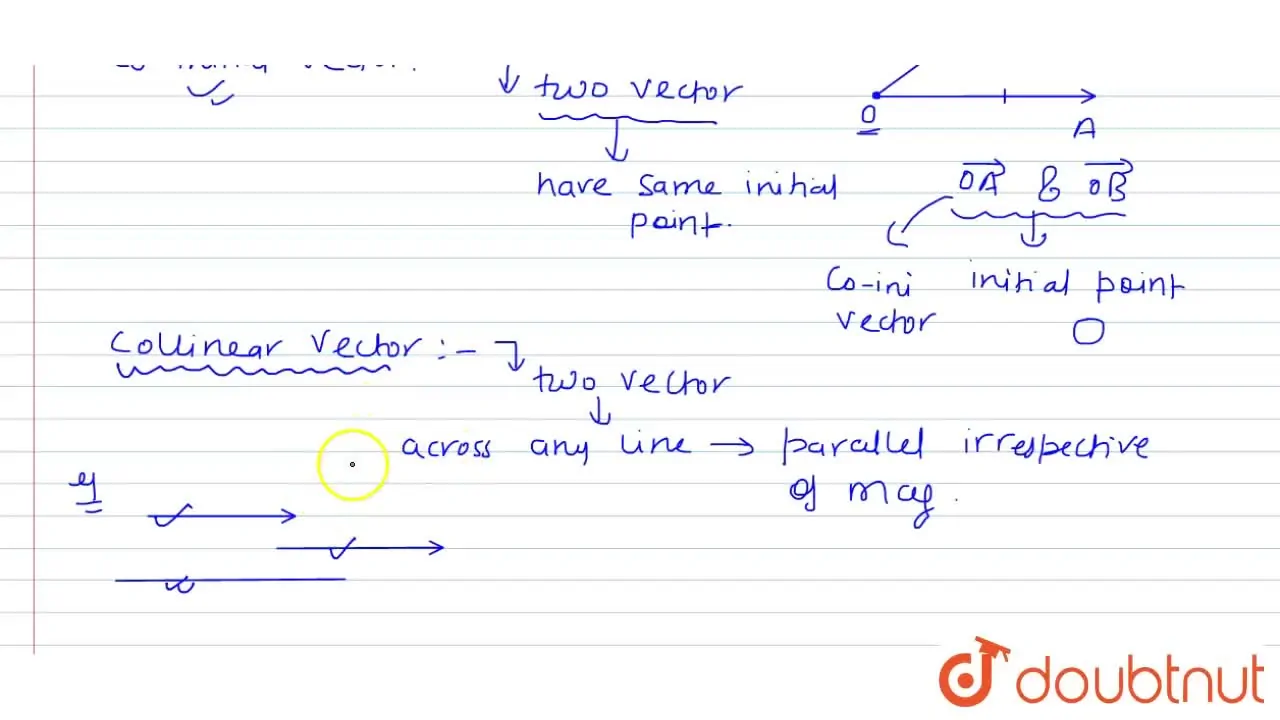 two vector
O
A
have same initial
point.
OA & OB
Co-ini
vector
initial point
O
Collinear Vector :-
two vector
across any line → parallel irrespective
of mag.
eg
doubtnut